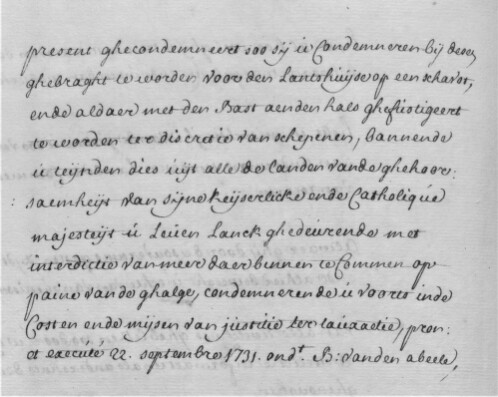 present ghecondemneert soo sij u Condemneren bij desen
ghebraght te worden voor den Lantshuijse op een schavot,
ende aldaer met den Bast aenden hals ghefustigeert
te worden ter discretie van schepenen, bannende
u teijnden dies uijt alle de landen vande ghehoor:
saemheijt van sijne keijserlicke ende Catholique
majesteijt u Leven Lanck ghedeurende met
interdictie van meer daer binnen te Commen op
paine vande ghalge, condemnerende u voorts inde
Costen ende mijsen van justitie ter tauxatie, pron:
et execute 22. septembre 1731. ondt. B: vanden abeele,